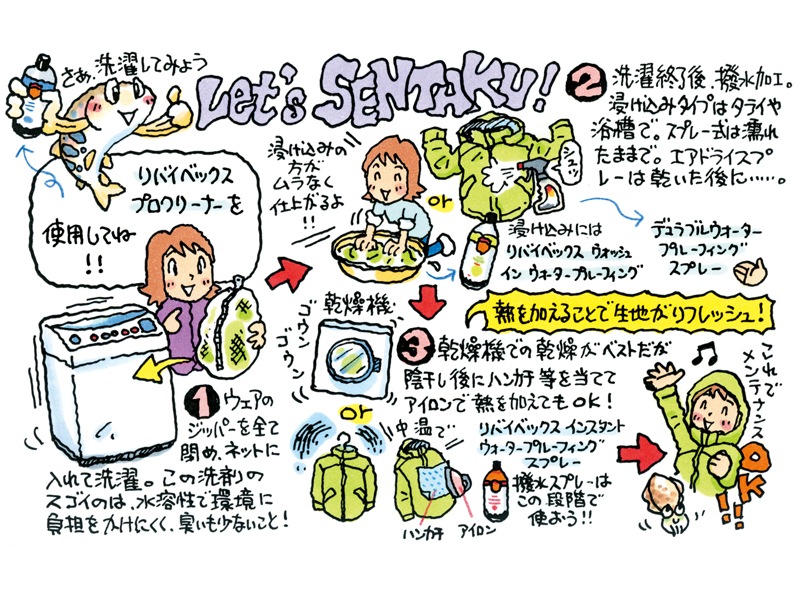 さあ、洗濯してみよう
Let's SENTAKU!
リバイベックス
プロクリーナーを
使用してね
!!
1 ウェアの
ジッパーを全て
閉め、ネットに
入れて洗濯。この洗剤の
スゴイのは、水溶性で環境に
負担をかけにくく、臭いも少ないこと!
浸け込みの
方が
ムラなく
仕上がるよ
!!
or
シュッ
2 洗濯終了後、撥水加工。
浸け込みタイプはタライや
浴槽で。スプレー式は濡れ
たままで。エアドライスプ
レーは乾いた後に……。
浸け込みには
リバイベックス ウォッシュ
イン ウォータープルーフィング
デュラブルウォーター
プルーフィング
スプレー
熱を加えることで生地がリフレッシュ!
乾燥機
ゴウン
ゴウン
3 乾燥機での乾燥がベストだが
陰干し後にハンカチ等を当てて
アイロンで熱を加えてもOK!
or
中温で
ハンカチ
アイロン
リバイベックス インスタント
ウォータープルーフィング
スプレー
撥水スプレーは
この段階で
使おう!!
これで
メンテナンス
OK!!